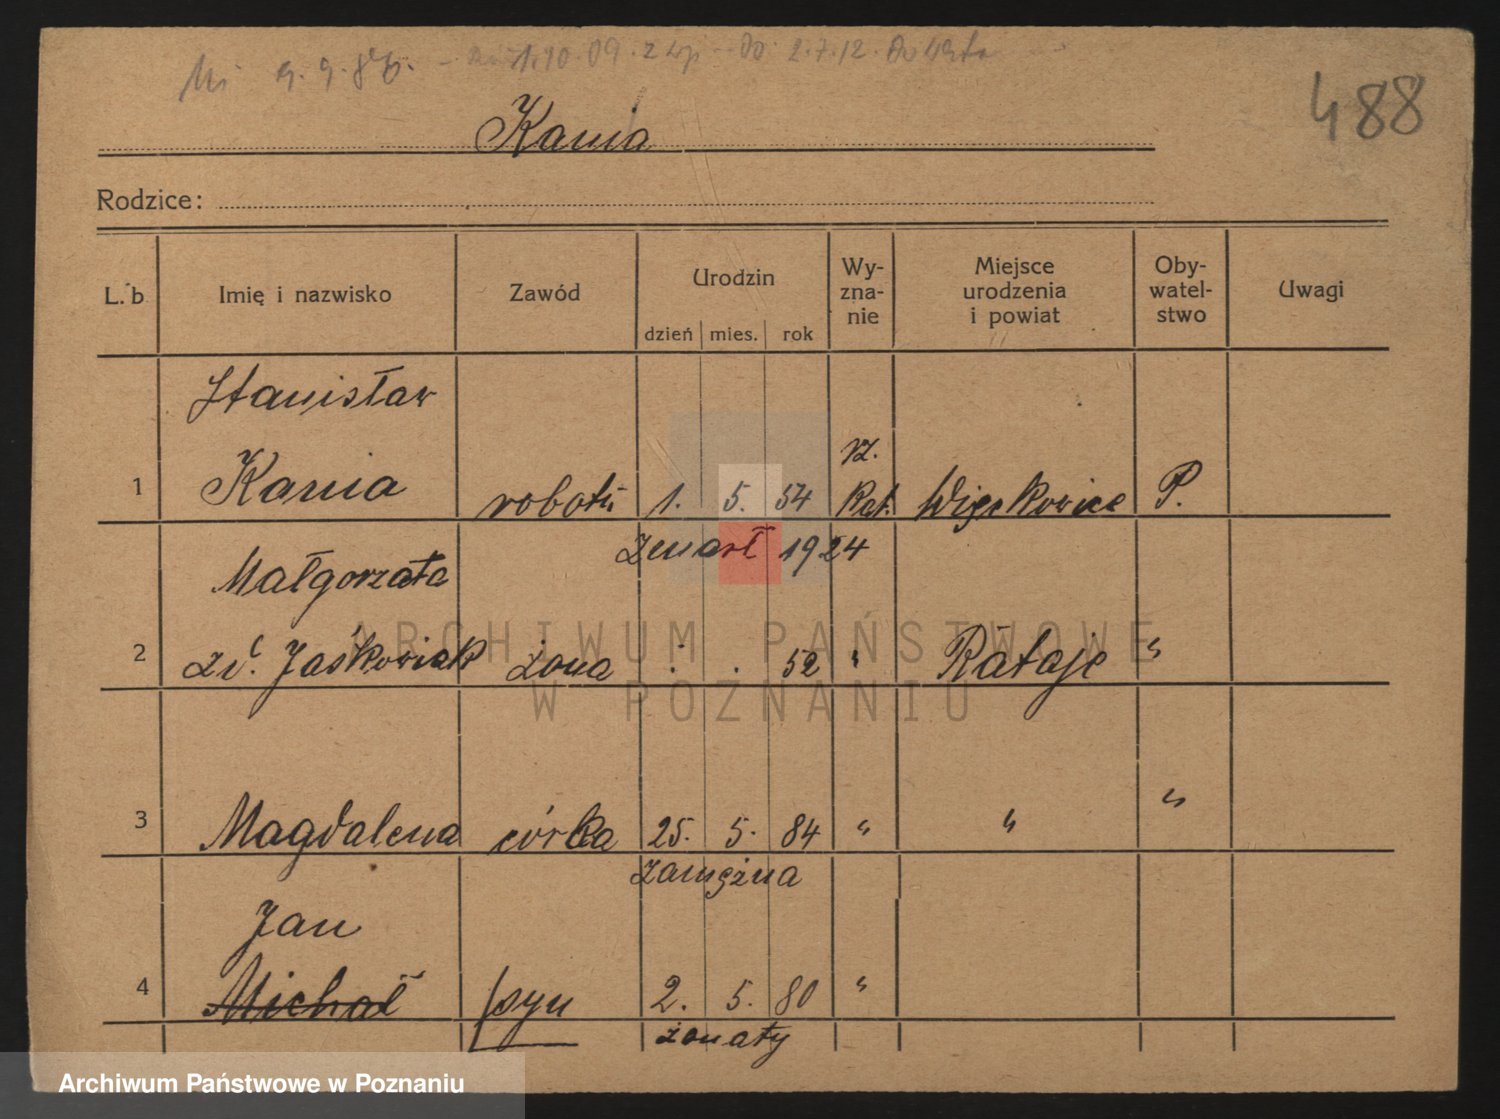 9.9.86.
2.7.12.
488
Kania
Rodzice:
L. b
Imię i nazwisko
Zawód
Urodzin
dzień mies. rok
Wy-
zna-
nie
Miejsce
urodzenia
i powiat
Oby-
watel-
stwo
Uwagi
Stanisław
1 Kania robotn 1. 5. 54 rz. kat. Więckowice P.
zmarł 1924
Małgorzata
2 zd. Jaśkowiak żona . . 52 " Rataje "
3 Magdalena córka 25. 5. 84 " " "
zamężna
Jan
4 Michał syn 2. 5. 80 "
żonaty
ARCHIWUM PAŃSTWOWE
W POZNANIU
Archiwum Państwowe w Poznaniu